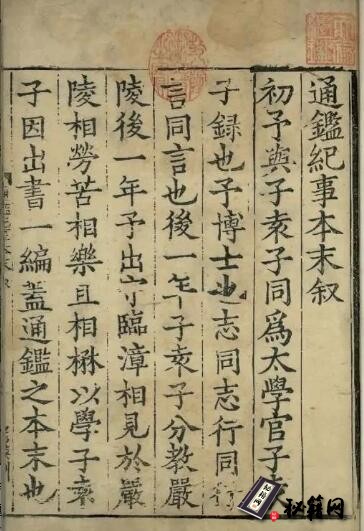 通鑑紀事本末叙
初予與子袁子同爲太學官子
子録也予博士也志同志行同
言同言也後一年子袁子分教嚴
陵後一年予出守臨漳相見於嚴
陵相勞苦相樂且相楙以學子袁
子因出書一編蓋通鑑之本末也
秘籍网